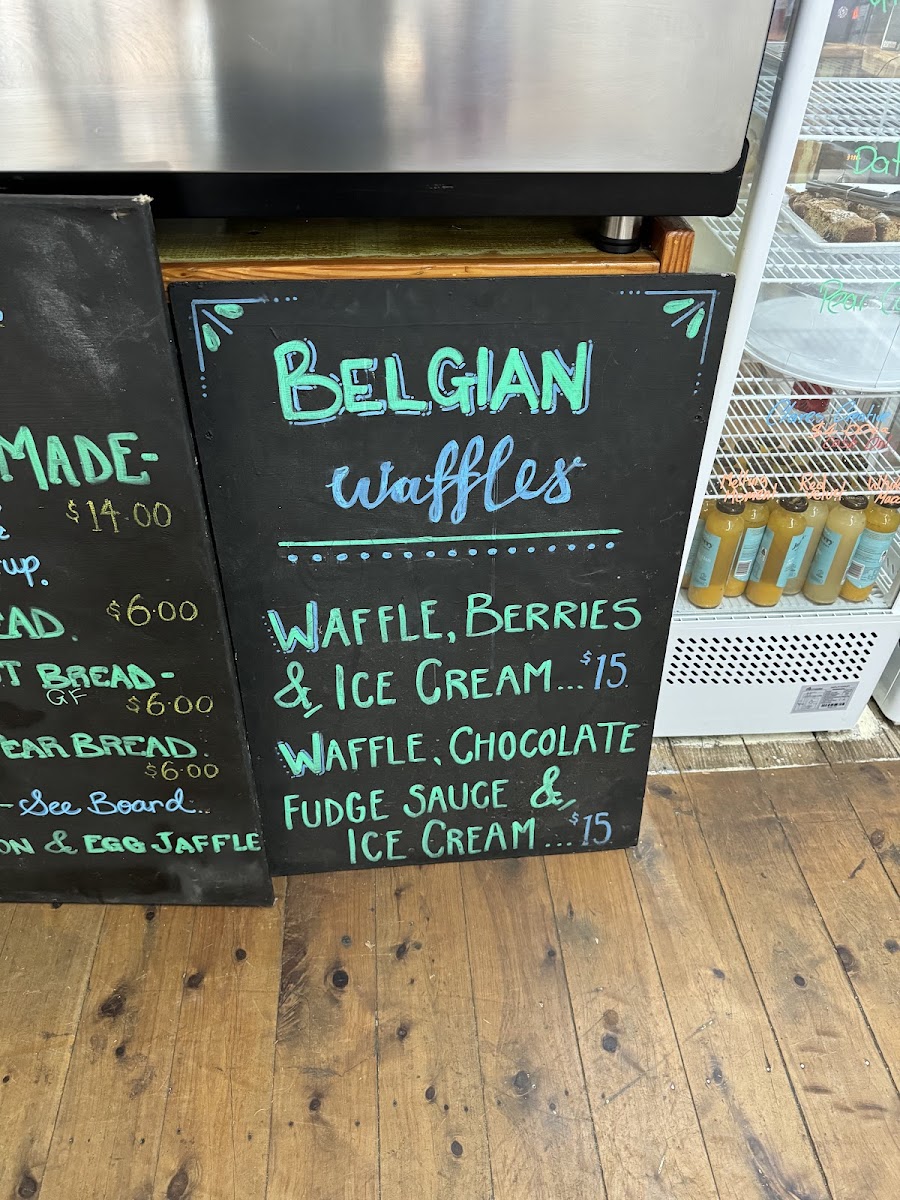 MADE-
$14.00
up.
EAD. $6.00
T BREAD-
GF $6.00
EAR BREAD.
$6.00
- See Board...
ON & EGG JAFFLE
BELGIAN
waffles
WAFFLE, BERRIES
& ICE CREAM...$15
WAFFLE, CHOCOLATE
FUDGE SAUCE &
ICE CREAM...$15
Dat
Pear